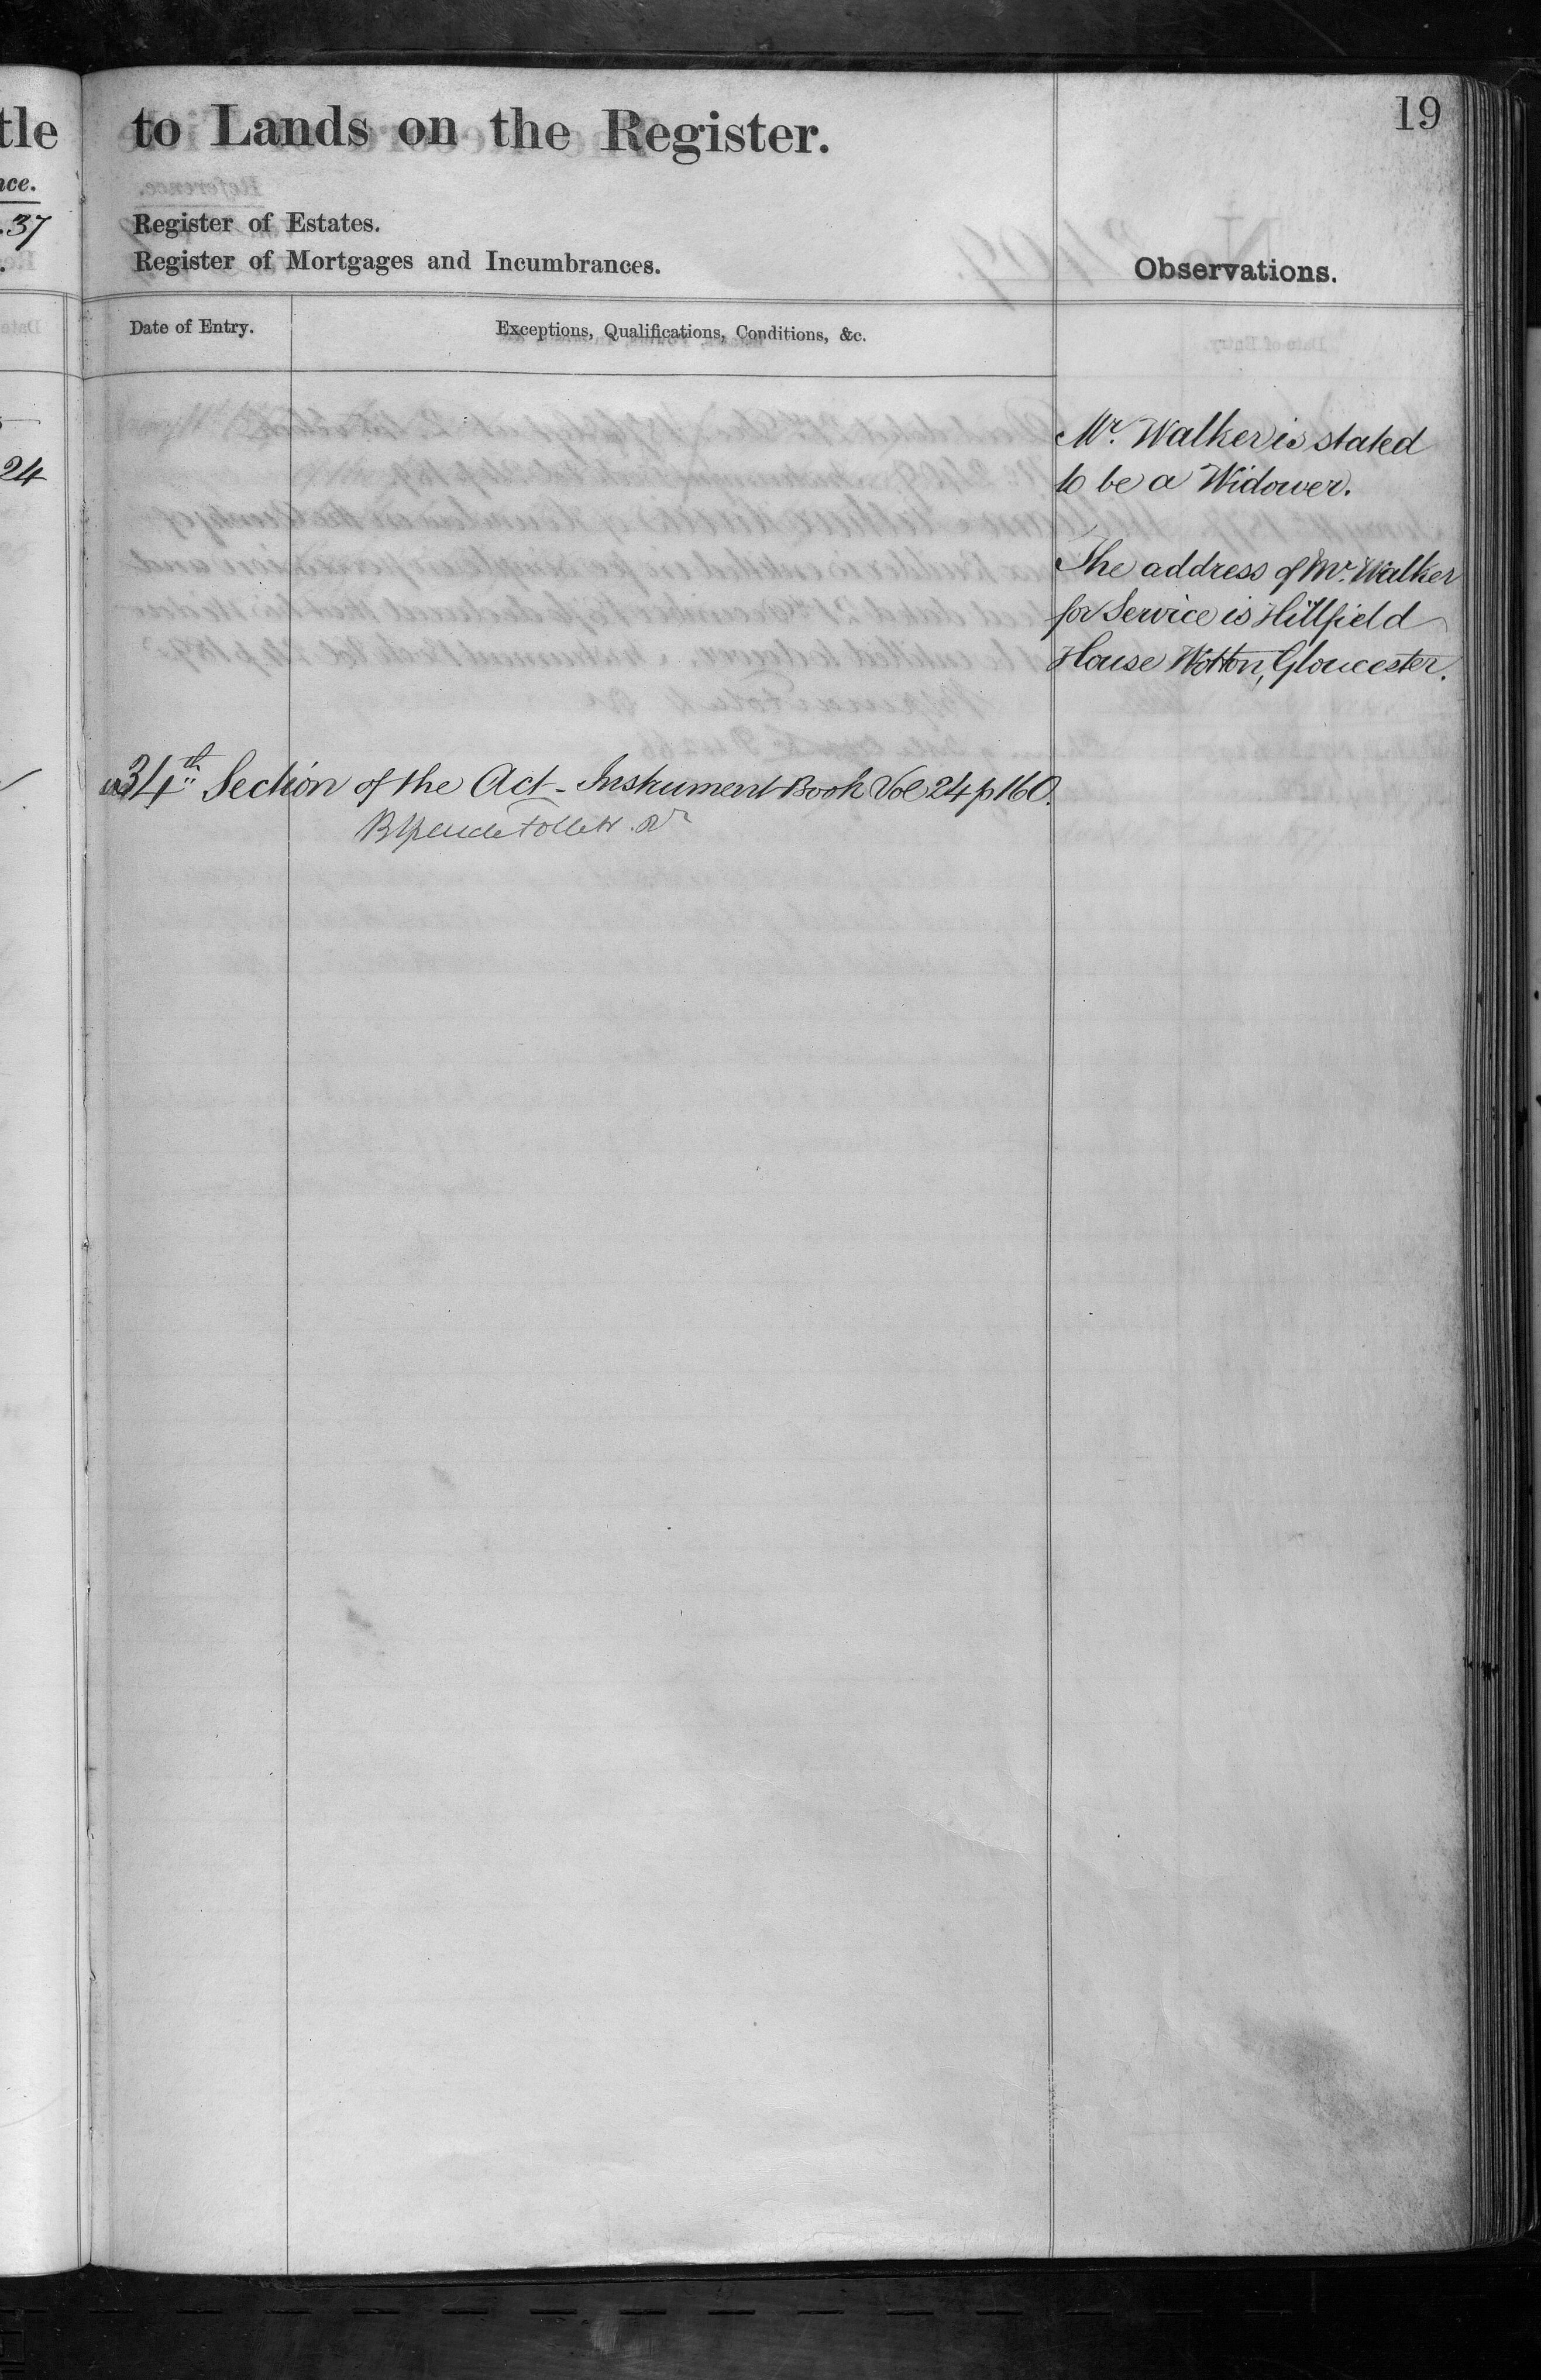 tle
nce.
.37
24
to Lands on the Register.
19
Register of Estates.
Register of Mortgages and Incumbrances.
Observations.
Date of Entry.
Exceptions, Qualifications, Conditions, &c.
Mr. Walker is stated
to be a Widower.
The address of Mr. Walker
for Service is Hillfield
House Wotton, Gloucester.
34th Section of the Act - Instrument Book Vol 24 p 160.